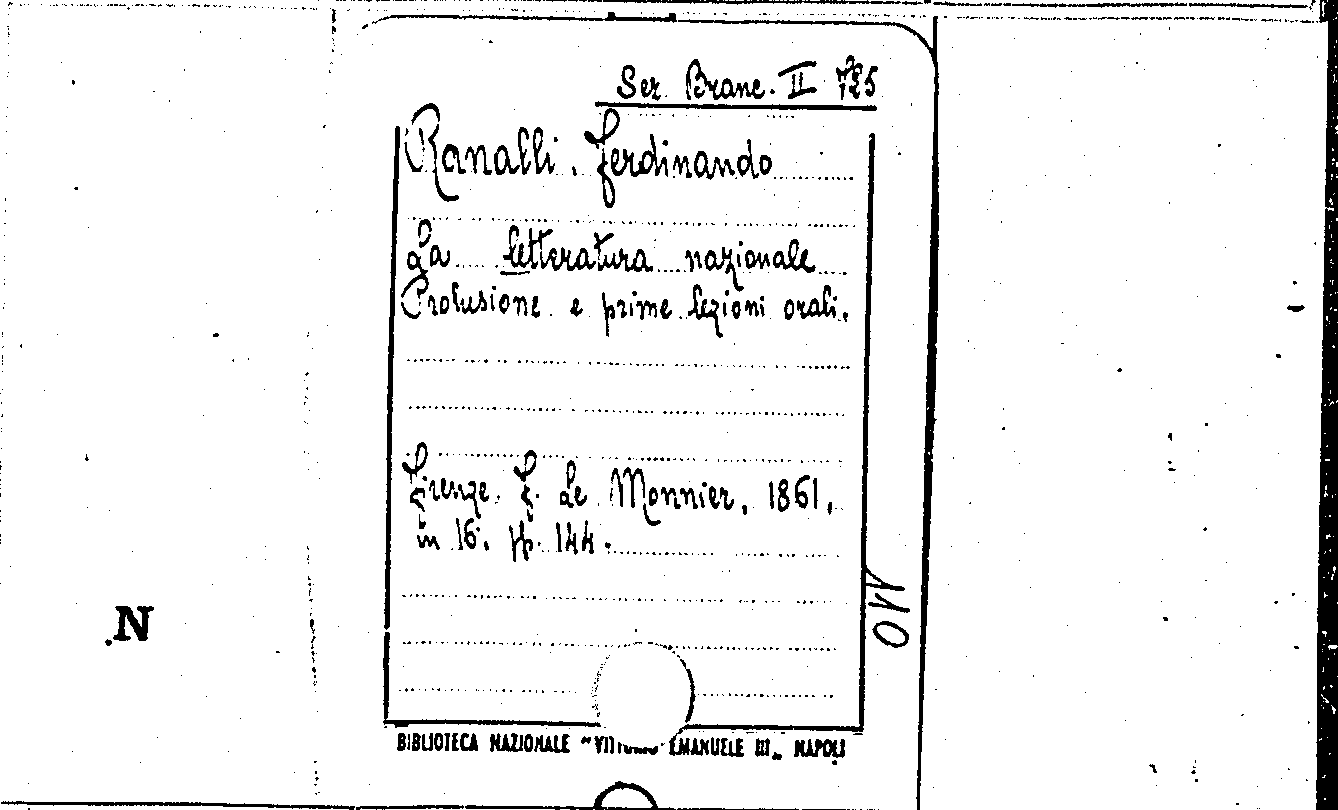 Sez. Branc. II 725
Ranalli, Ferdinando
La letteratura nazionale
Prolusione e prime lezioni orali.
Firenze. F. Le Monnier, 1861,
in 16°. pp. 144.
N
BIBLIOTECA NAZIONALE "VITTORIO EMANUELE III„ NAPOLI